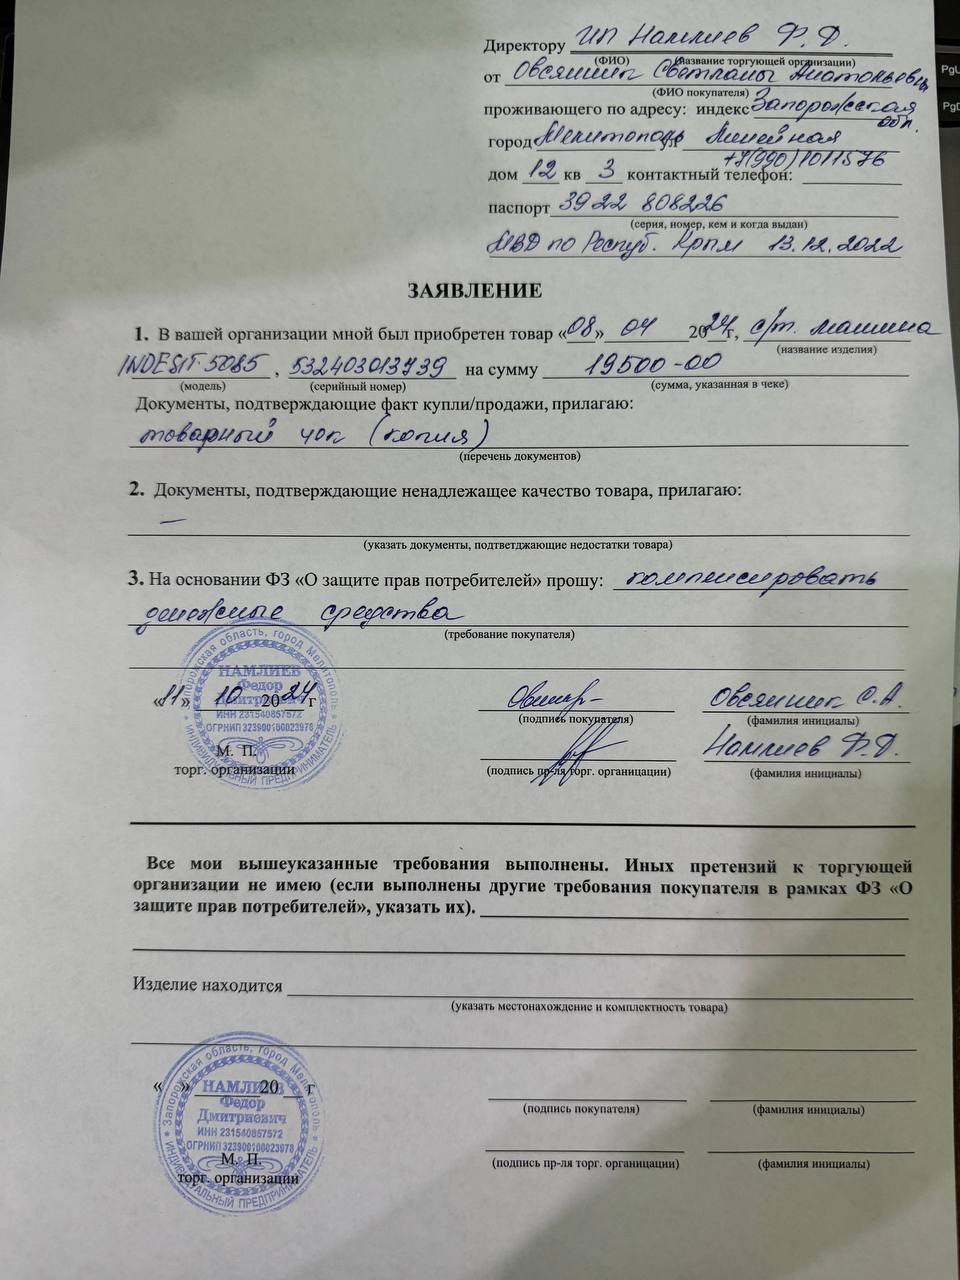 Директору ИП Намлиев Ф. Д.
(ФИО) (название торгующей организации)
от Овсянник Светланы Анатольевны
(ФИО покупателя)
проживающего по адресу: индекс Запорожская обл.
город Мелитополь ул Линейная
+7(990)1011576
дом 12 кв 3 контактный телефон:
паспорт 3922 808226
(серия, номер, кем и когда выдан)
МВД по Респуб. Крым 13.12.2022
ЗАЯВЛЕНИЕ
1. В вашей организации мной был приобретен товар «08» 04 2024г, с/т. машина
(название изделия)
INDESIT 5085, 532403013739 на сумму 19500-00
(модель) (серийный номер) (сумма, указанная в чеке)
Документы, подтверждающие факт купли/продажи, прилагаю:
товарный чек (копия)
(перечень документов)
2. Документы, подтверждающие ненадлежащее качество товара, прилагаю:
—
(указать документы, подтветджающие недостатки товара)
3. На основании ФЗ «О защите прав потребителей» прошу: компенсировать
денежные средства
(требование покупателя)
«11» 10 2024г Овсянник С.А.
(подпись покупателя) (фамилия инициалы)
Намлиев Ф.Д.
М. П.
торг. организации (подпись пр-ля торг. органицации) (фамилия инициалы)
Запорожская область, город Мелитополь
НАМЛИЕВ
Федор
Дмитриевич
ИНН 231540857572
ОГРНИП 323900100023978
ИНДИВИДУАЛЬНЫЙ ПРЕДПРИНИМАТЕЛЬ
Все мои вышеуказанные требования выполнены. Иных претензий к торгующей
организации не имею (если выполнены другие требования покупателя в рамках ФЗ «О
защите прав потребителей», указать их).
Изделие находится
(указать местонахождение и комплектность товара)
« » 20 г
(подпись покупателя) (фамилия инициалы)
М. П.
торг. организации (подпись пр-ля торг. органицации) (фамилия инициалы)
Запорожская область, город Мелитополь
НАМЛИЕВ
Федор
Дмитриевич
ИНН 231540857572
ОГРНИП 323900100023978
ИНДИВИДУАЛЬНЫЙ ПРЕДПРИНИМАТЕЛЬ